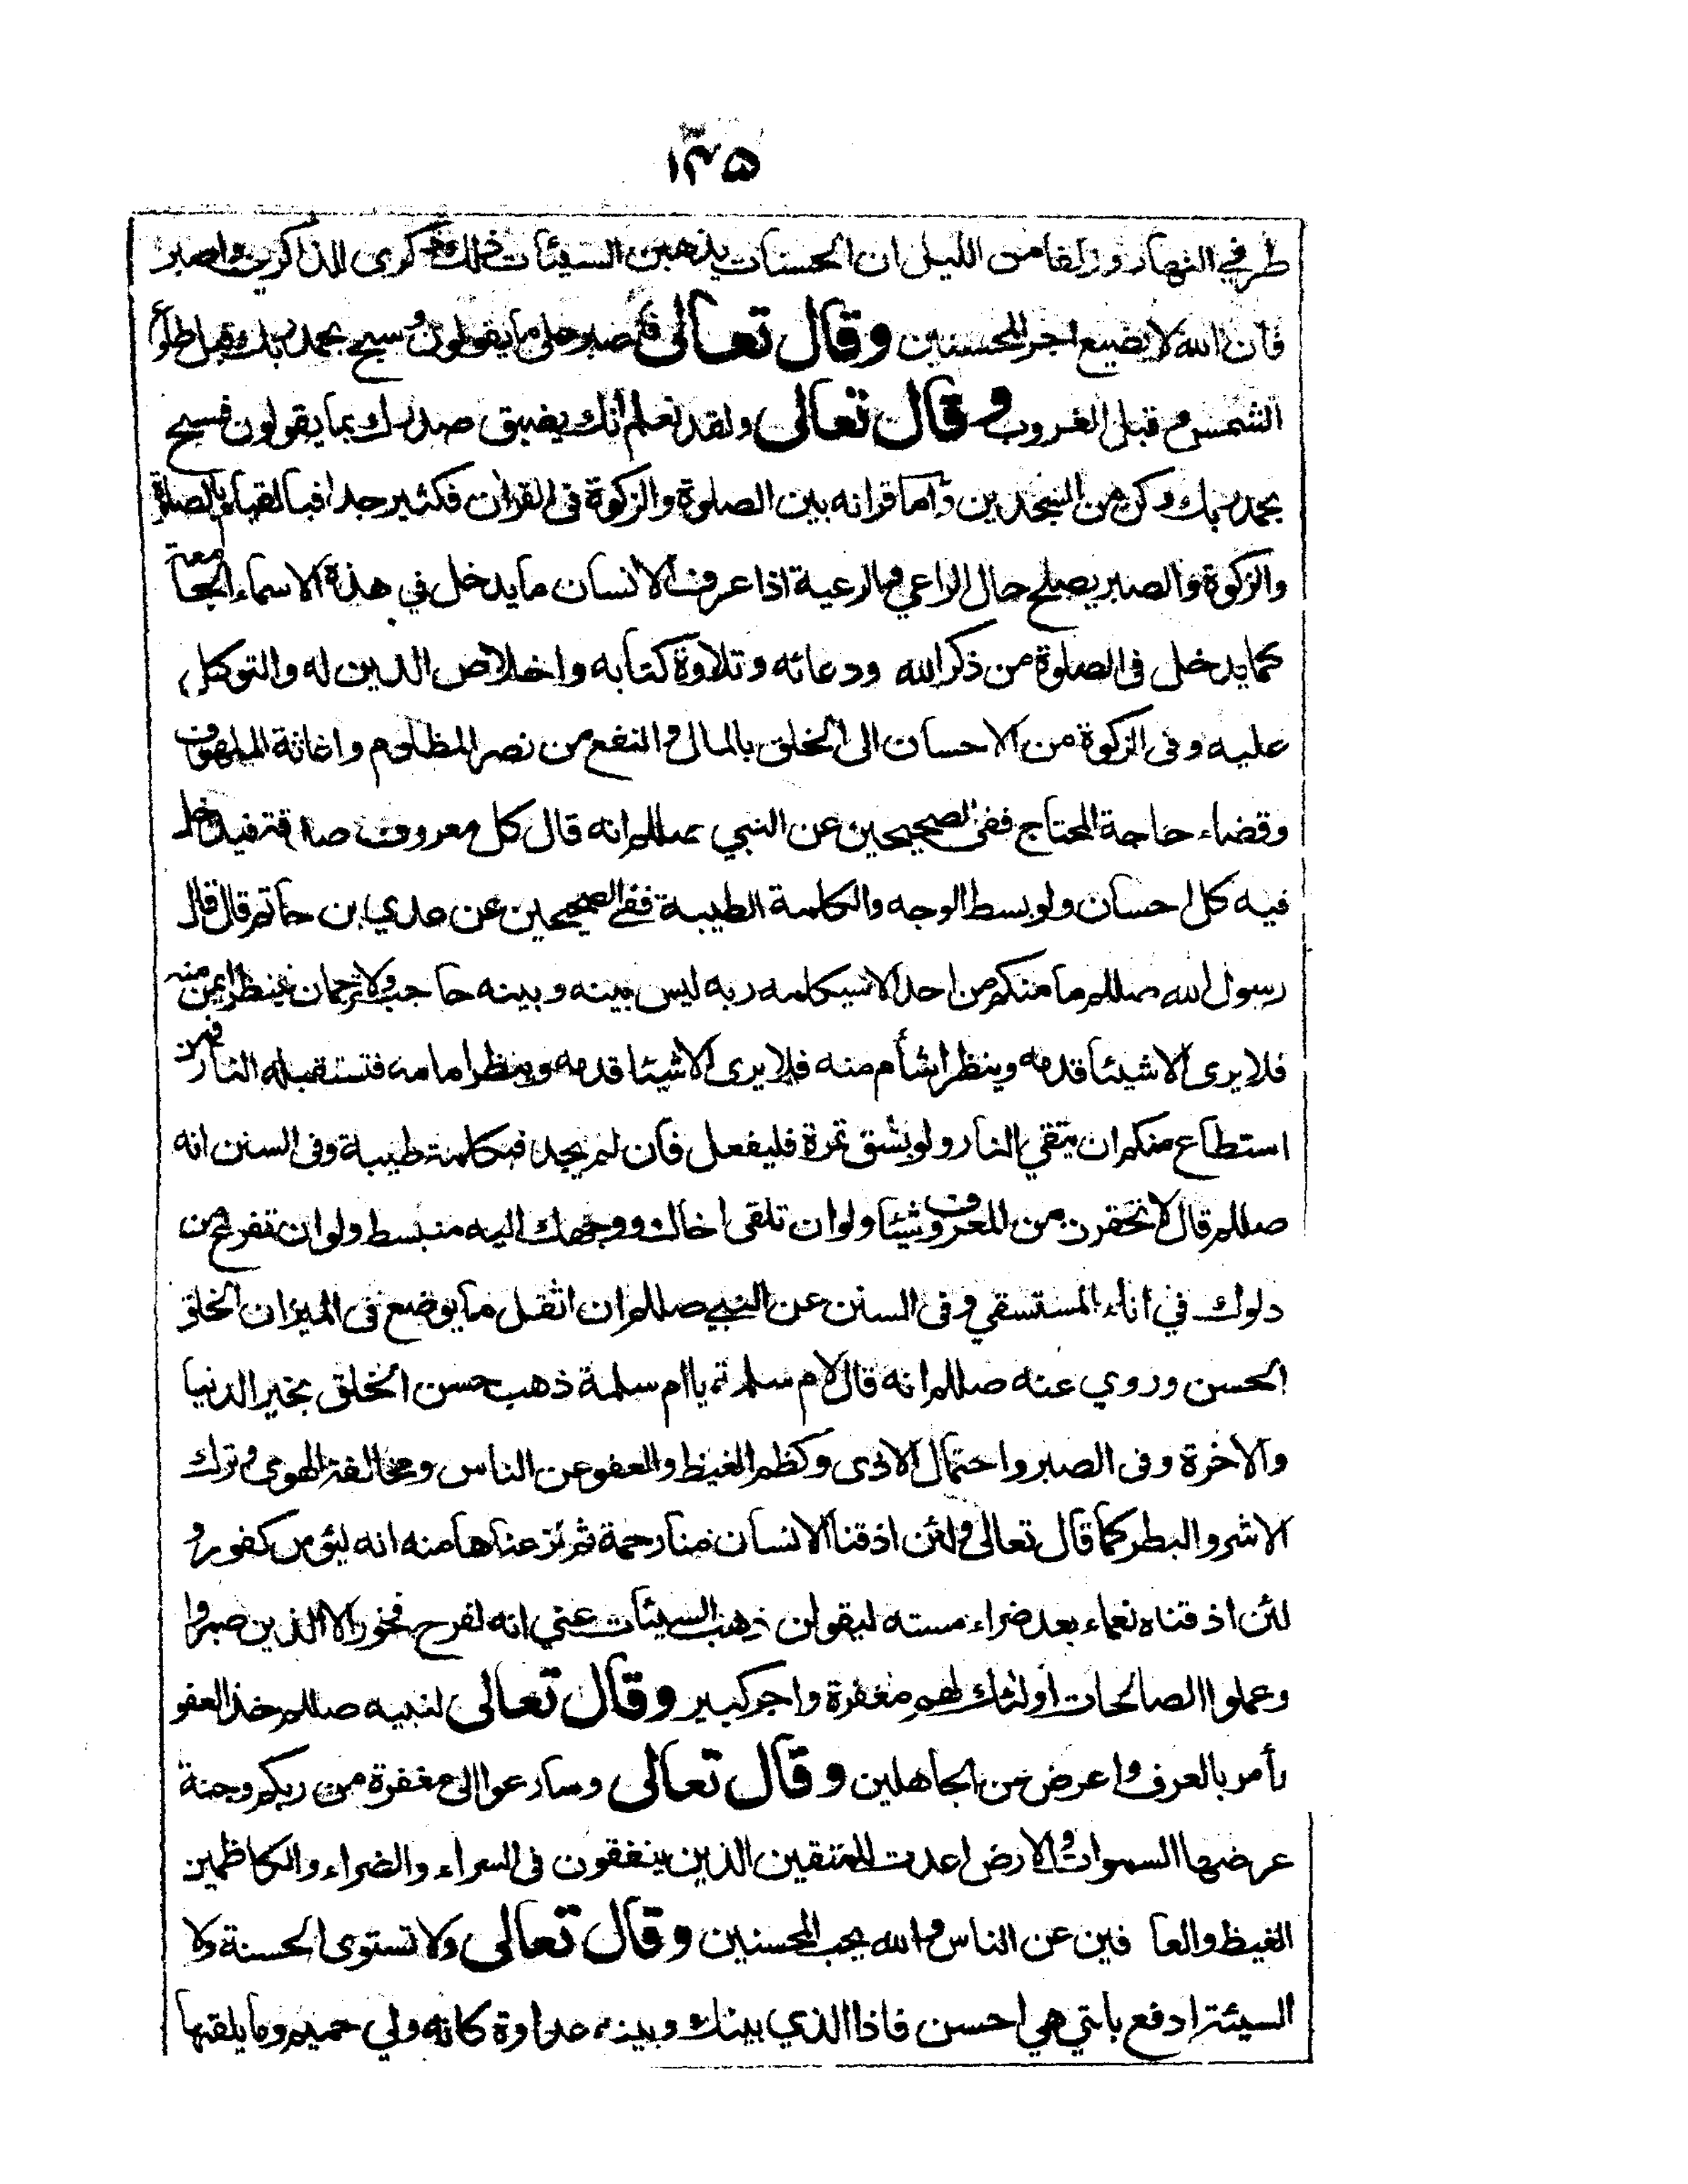 ١٣٥
طرفي النهار وزلفا من الليل ان الحسنات يذهبن السيئات ذلك ذكرى للذاكرين واصبر
فان الله لا يضيع اجر المحسنين وقال تعالى فاصبر على ما يقولون وسبح بحمد ربك قبل طلوع
الشمس وقبل الغروب وقال تعالى ولقد نعلم انك يضيق صدرك بما يقولون فسبح
بحمد ربك وكن من السجدين واما قرانه بين الصلوة والزكوة فى القران فكثير جدا فبالقيام بالصلاة
والزكوة والصبر يصلح حال الراعي والرعية اذا عرف الانسان ما يدخل في هذه الاسماء الجامعة
كما يدخل فى الصلوة من ذكر الله ودعائه وتلاوة كتابه واخلاص الدين له والتوكل
عليه وفى الزكوة من الاحسان الى الخلق بالمال والنفع من نصر المظلوم واغاثة الملهوف
وقضاء حاجة المحتاج ففى الصحيحين عن النبي صللم انه قال كل معروف صدقة فيدخل
فيه كل احسان ولو ببسط الوجه والكلمة الطيبة ففى الصحيحين عن عدي بن حاتم قال قال
رسول الله صللم ما منكم من احد الا سيكلمه ربه ليس بينه وبينه حاجب ولا ترجمان فينظر ايمن منه
فلا يرى الا شيئا قدمه وينظر اشأم منه فلا يرى الا شيئا قدمه وينظر امامه فتستقبله النار فمن
استطاع منكم ان يتقي النار ولو بشق تمرة فليفعل فان لم يجد فبكلمة طيبة وفى السنن انه
صللم قال لا تحقرن من المعروف شيئا ولو ان تلقى اخاك ووجهك اليه منبسط ولو ان تفرغ من
دلوك في اناء المستسقي وفى السنن عن النبي صللم ان اثقل ما يوضع فى الميزان الخلق
الحسن وروي عنه صللم انه قال لام سلمة يا ام سلمة ذهب حسن الخلق بخير الدنيا
والاخرة وفى الصبر واحتمال الاذى وكظم الغيظ والعفو عن الناس ومخالفة الهوى وترك
الاشر والبطر كما قال تعالى ولئن اذقنا الانسان منا رحمة ثم نزعناها منه انه ليؤس كفور و
لئن اذقناه نعماء بعد ضراء مسته ليقولن ذهب السيئات عني انه لفرح فخور الا الذين صبروا
وعملوا الصالحات اولئك لهم مغفرة واجر كبير وقال تعالى لنبيه صللم خذ العفو
وأمر بالعرف واعرض عن الجاهلين وقال تعالى وسارعوا الى مغفرة من ربكم وجنة
عرضها السموات والارض اعدت للمتقين الذين ينفقون فى السراء والضراء والكاظمين
الغيظ والعافين عن الناس والله يحب المحسنين وقال تعالى ولا تستوى الحسنة ولا
السيئة ادفع بالتي هي احسن فاذا الذي بينك وبينه عداوة كانه ولي حميم وما يلقيها